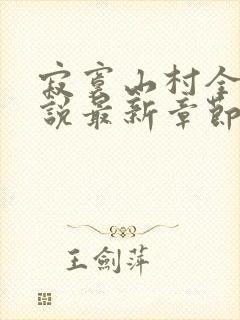 寂寞山村全
說最新章節
王劍萍